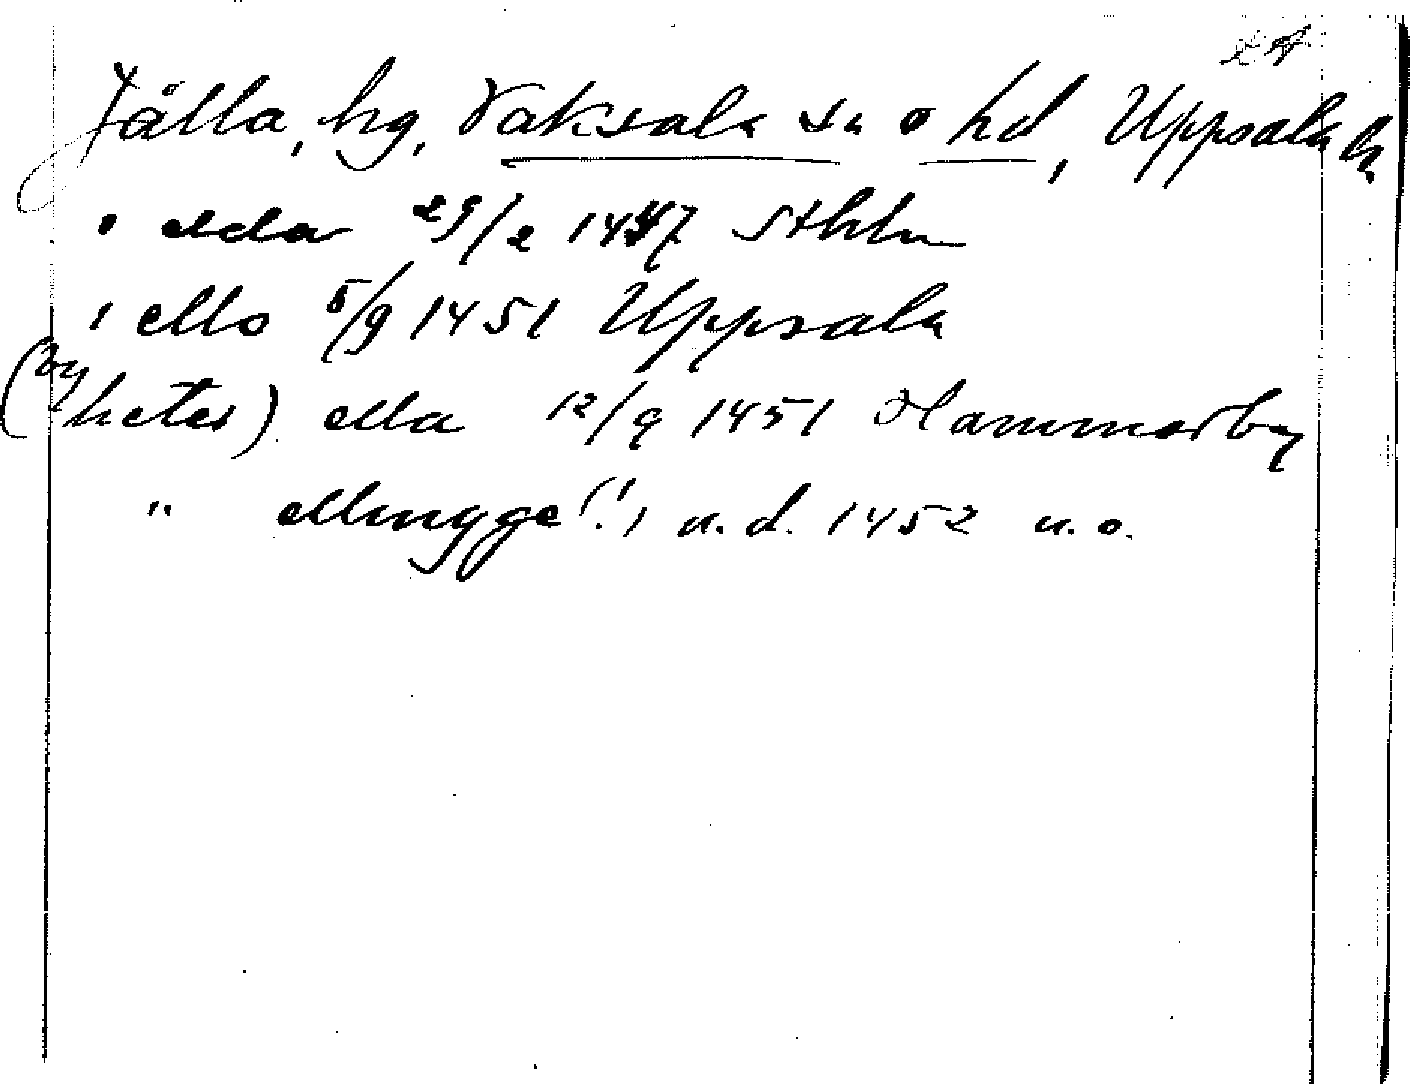 Jälla, hg, Vaksala sn o hd, Uppsala ln
i elda 29/2 1447 Sthlm
i ello 5/9 1451 Uppsala
(by heter) ella 12/9 1451 Hammarby
" ellingge (!) u.d. 1452 u.o.